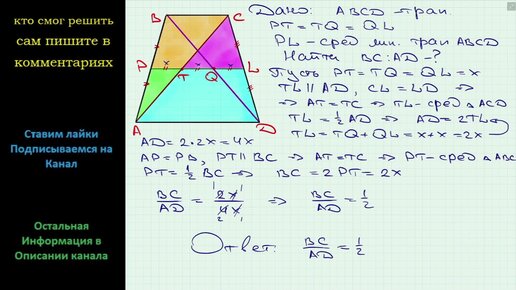 кто смог решить
сам пишите в
комментариях
Ставим лайки
Подписываемся на
Канал
Остальная
Информация в
Описании канала
B
C
P
T
Q
L
A
D
Дано: ABCD трап.
PT = TQ = QL
PL – сред. лин. трап ABCD
Найти BC:AD – ?
Пусть PT = TQ = QL = x
TL ∥ AD, CL = LD ⇒
⇒ AT = TC ⇒ TL – сред △ACD
TL = 1/2 AD ⇒ AD = 2TL
TL = TQ + QL = x + x = 2x
AD = 2·2x = 4x
AP = PB, PT ∥ BC ⇒ AT = TC ⇒ PT – сред △ABC
PT = 1/2 BC ⇒ BC = 2PT = 2x
BC/AD = 2x/4x ⇒ BC/AD = 1/2
Ответ: BC/AD = 1/2